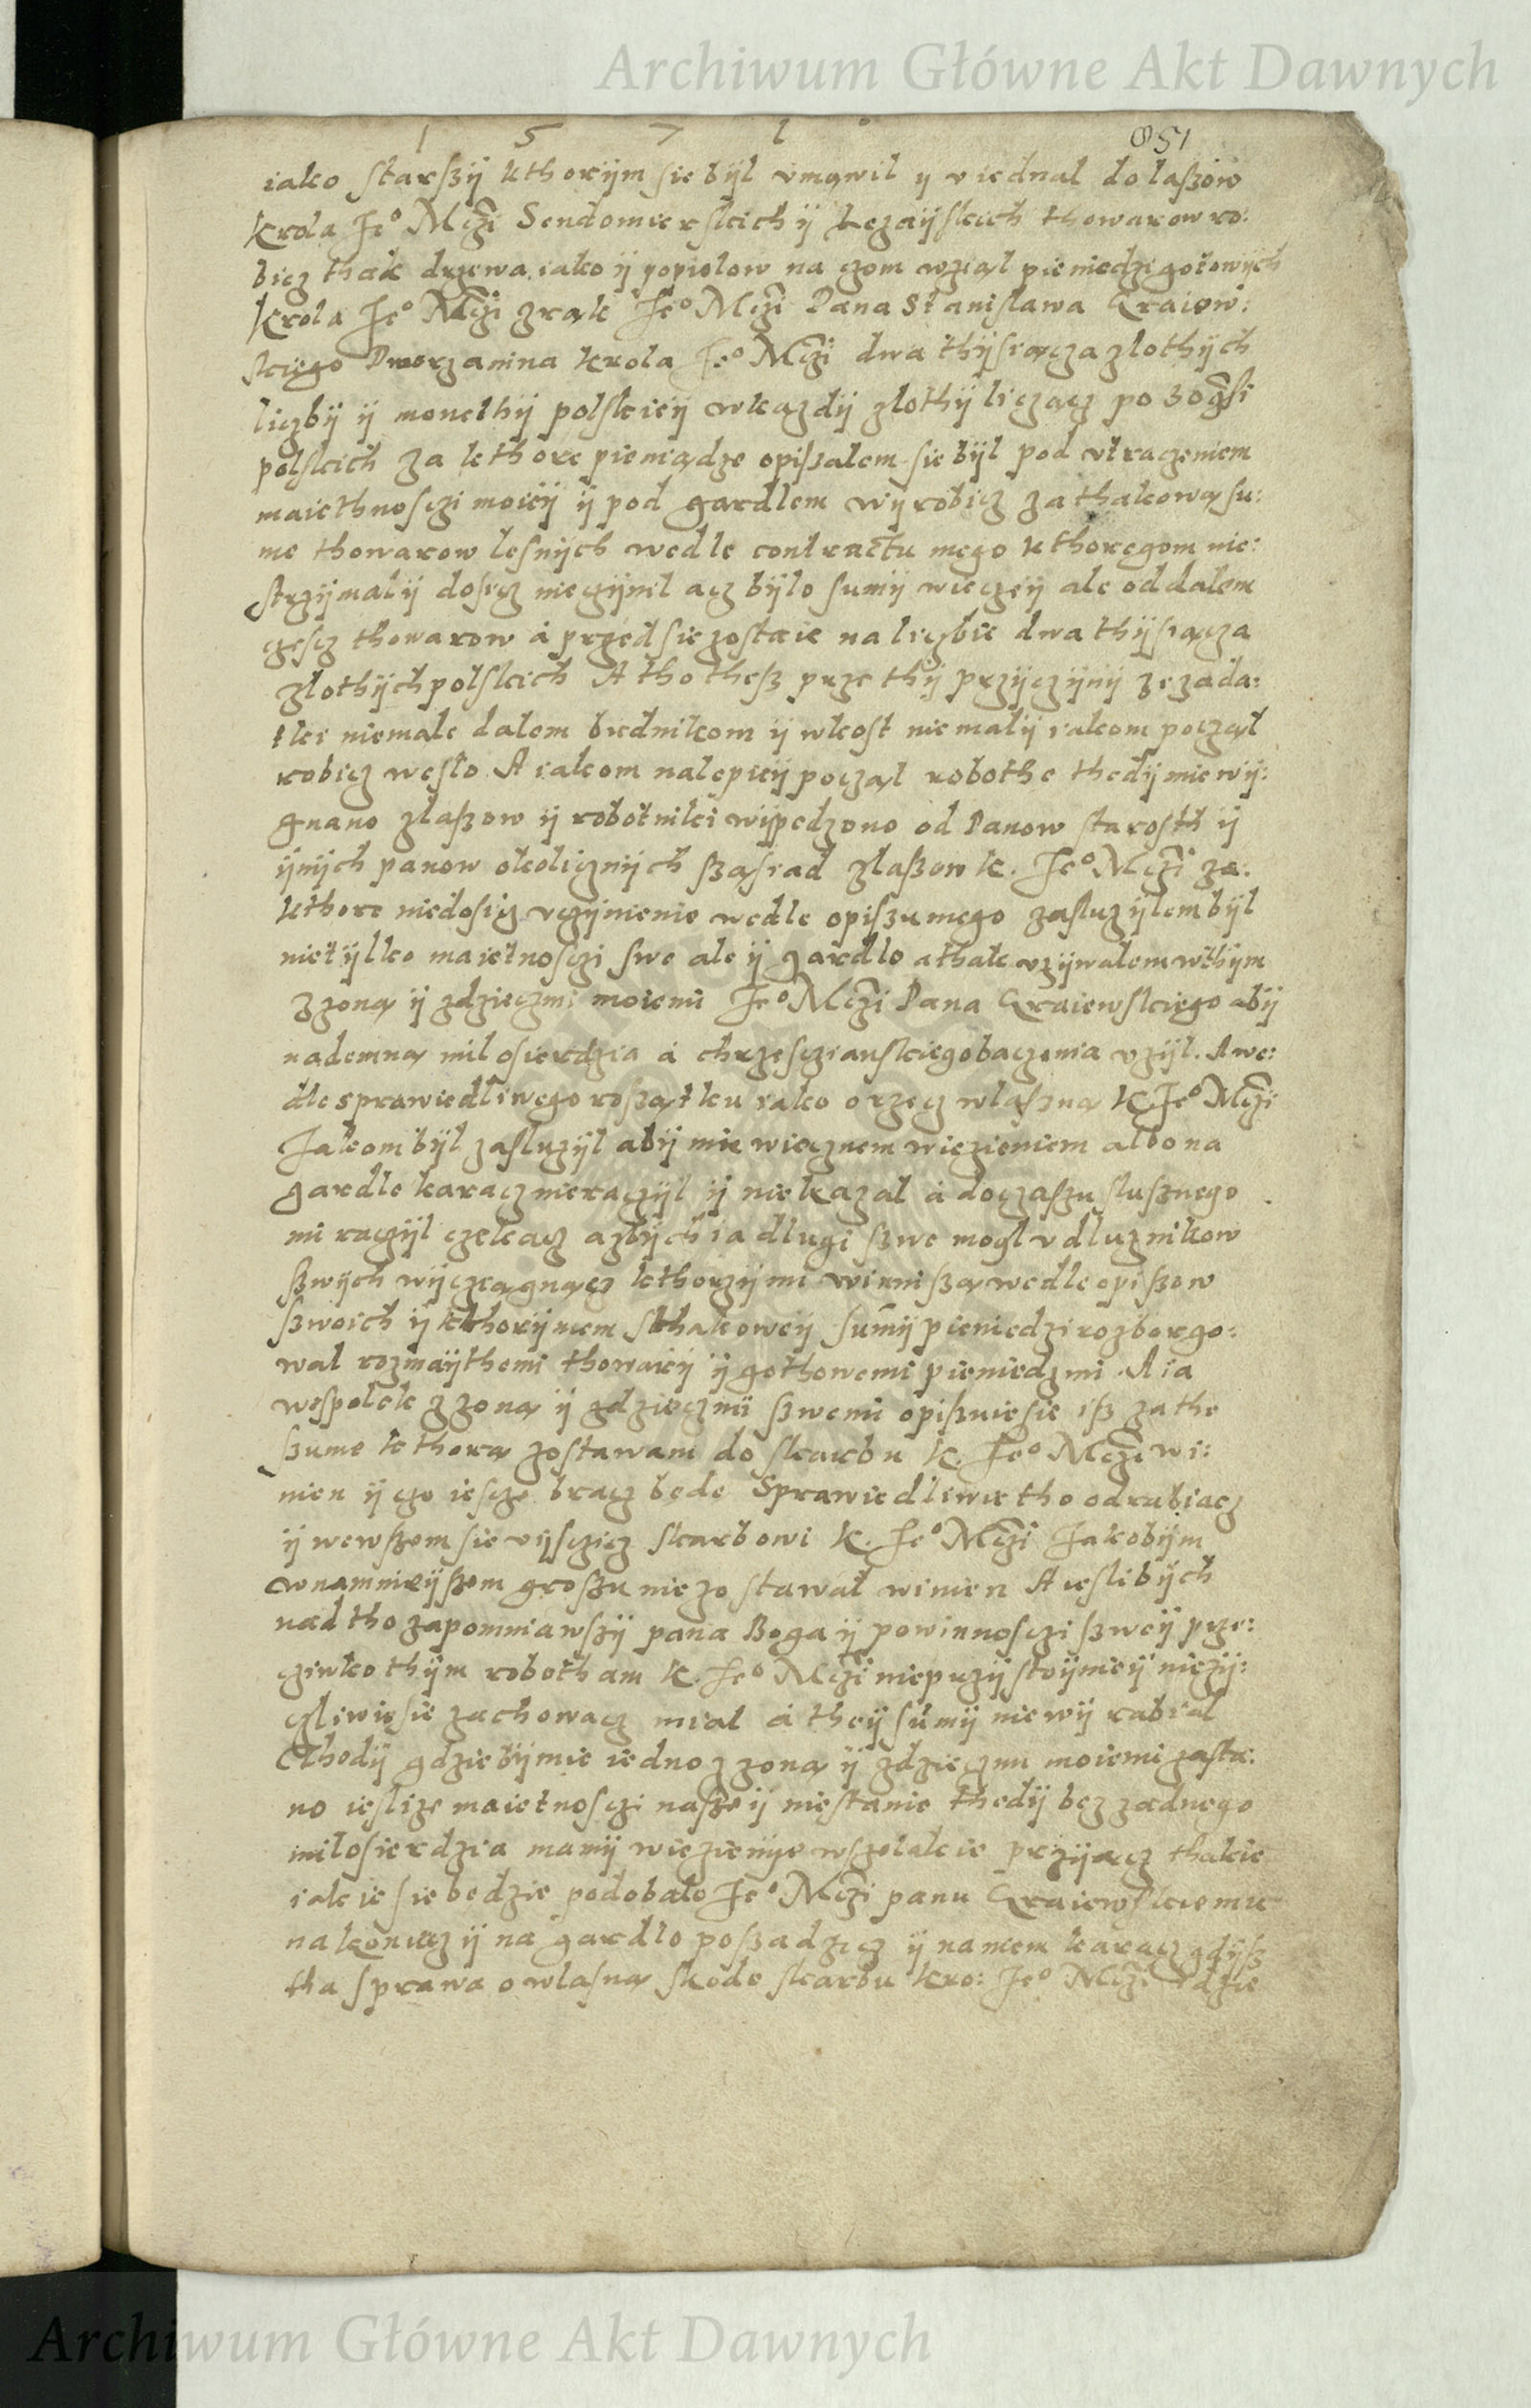 Archiwum Główne Akt Dawnych
1 5 7 1
iako starszij kthorijm sie bijl vmowil ij v iednal do laszow
Krola Je° Mczi Sendomierskich ij Lezaijskich thowarow ro:
bicz thak drzewa iako ij popiolow na czom wzial pieniedzi gotowijch
Krola Je° Mczi z rąk Je° Mczi Pana Stanislawa Craiew:
skiego Dworzanina krola Je° Mczi dwa thijsiącza zlothijch
liczbij ij monethij polskieij w kazdij zlothij liczącz po 30 grosi
polskich za kthore pieniądze opiszalem sie bijl pod vtraczeniem
maiethnosczi moieij ij pod gardlem wijrobicz za thakową su:
me thowarow lesnijch wedle contractu mego kthoregom nie:
strzijmal ij dosicz nie czijnil acz bijlo sumij wieczeij ale oddalem
czescz thowarow á przedsie zostaie na liczbie dwa thijsiącza
zlothijch polskich A tho thesz prze thij przijczijnij ze zada:
tki niemale dalem budnikom ij w kost niemalij iakom począl
robicz weszlo A iakom nalepieij począl robothe thedij mie wij:
gnano z laszow ij robotniki wijpedzono od Panow starosth ij
ijnijch panow okolicznijch sząsiad z laszow K. Je° Mczi za:
kthore niedosicz vczijnienie wedle opiszu mego zasluzijlem bijl
nie tijlko maietnosczi swe ale ij gardlo a thak vzijwalem w thijm
z zoną ij z dzieczmi moiemi Je° Mczi Pana Craiewskiego abij
nademną milosierdzia á chrzesczianskiego baczenia vzijl. A we:
dle sprawiedliwego roszątku iako o rzecz wlaszną K Je° Mczi
Jakom bijl zasluzijl abij mie wiecznem wiezieniem albo na
gardle karacz nie raczijl ij nie kazal á do czaszu slusznego
mi raczijl czekacz azbijch ia dlugi szwe mogl v dluznikow
szwijch wijcziągnącz kthorzij mi winni szą wedle opiszow
szwoich ij kthorijmem sthakoweij sumij pieniedzi rozborgo:
wal rozmaijthemi thowarij ij gothowemi pieniedzmi A ia
wespolek z zoną ij z dzieczmi szwemi opiszuie sie isz za the
szume kthorą zostawam do skarbu K. Je° Mczi wi:
nien ij czo iescze bracz bede Sprawiedliwie tho odrabiacz
ij wewszem sie vijsczicz skarbowi K. Je° Mczi Jakobijm
w namnieijszem groszu nie zostawal winien A ieslibijch
nad tho zapomniawszij pana Boga ij powinnosczi szweij prze:
cziwko thijm robotham K. Je° Mczi nieprzijstoijnie ij niezij:
czliwie sie zachowacz mial á theij sumij nie wij rabial
Thedij gdziebij mie iedno z zoną ij z dzieczmi moiemi zasta:
no ieslize maietnosczi naszeij niestanie thedij bez zadnego
milosierdzia mamij wiezienije wszelakie przijącz thakie
iakie sie bedzie podobalo Je° Mczi panu Craiewskiemu
na koniecz ij na gardlo poszadzicz ij na niem karacz gdijsz
tha sprawa o wlasną skode skarbu kro: Je° Mczi idzie
Archiwum Główne Akt Dawnych